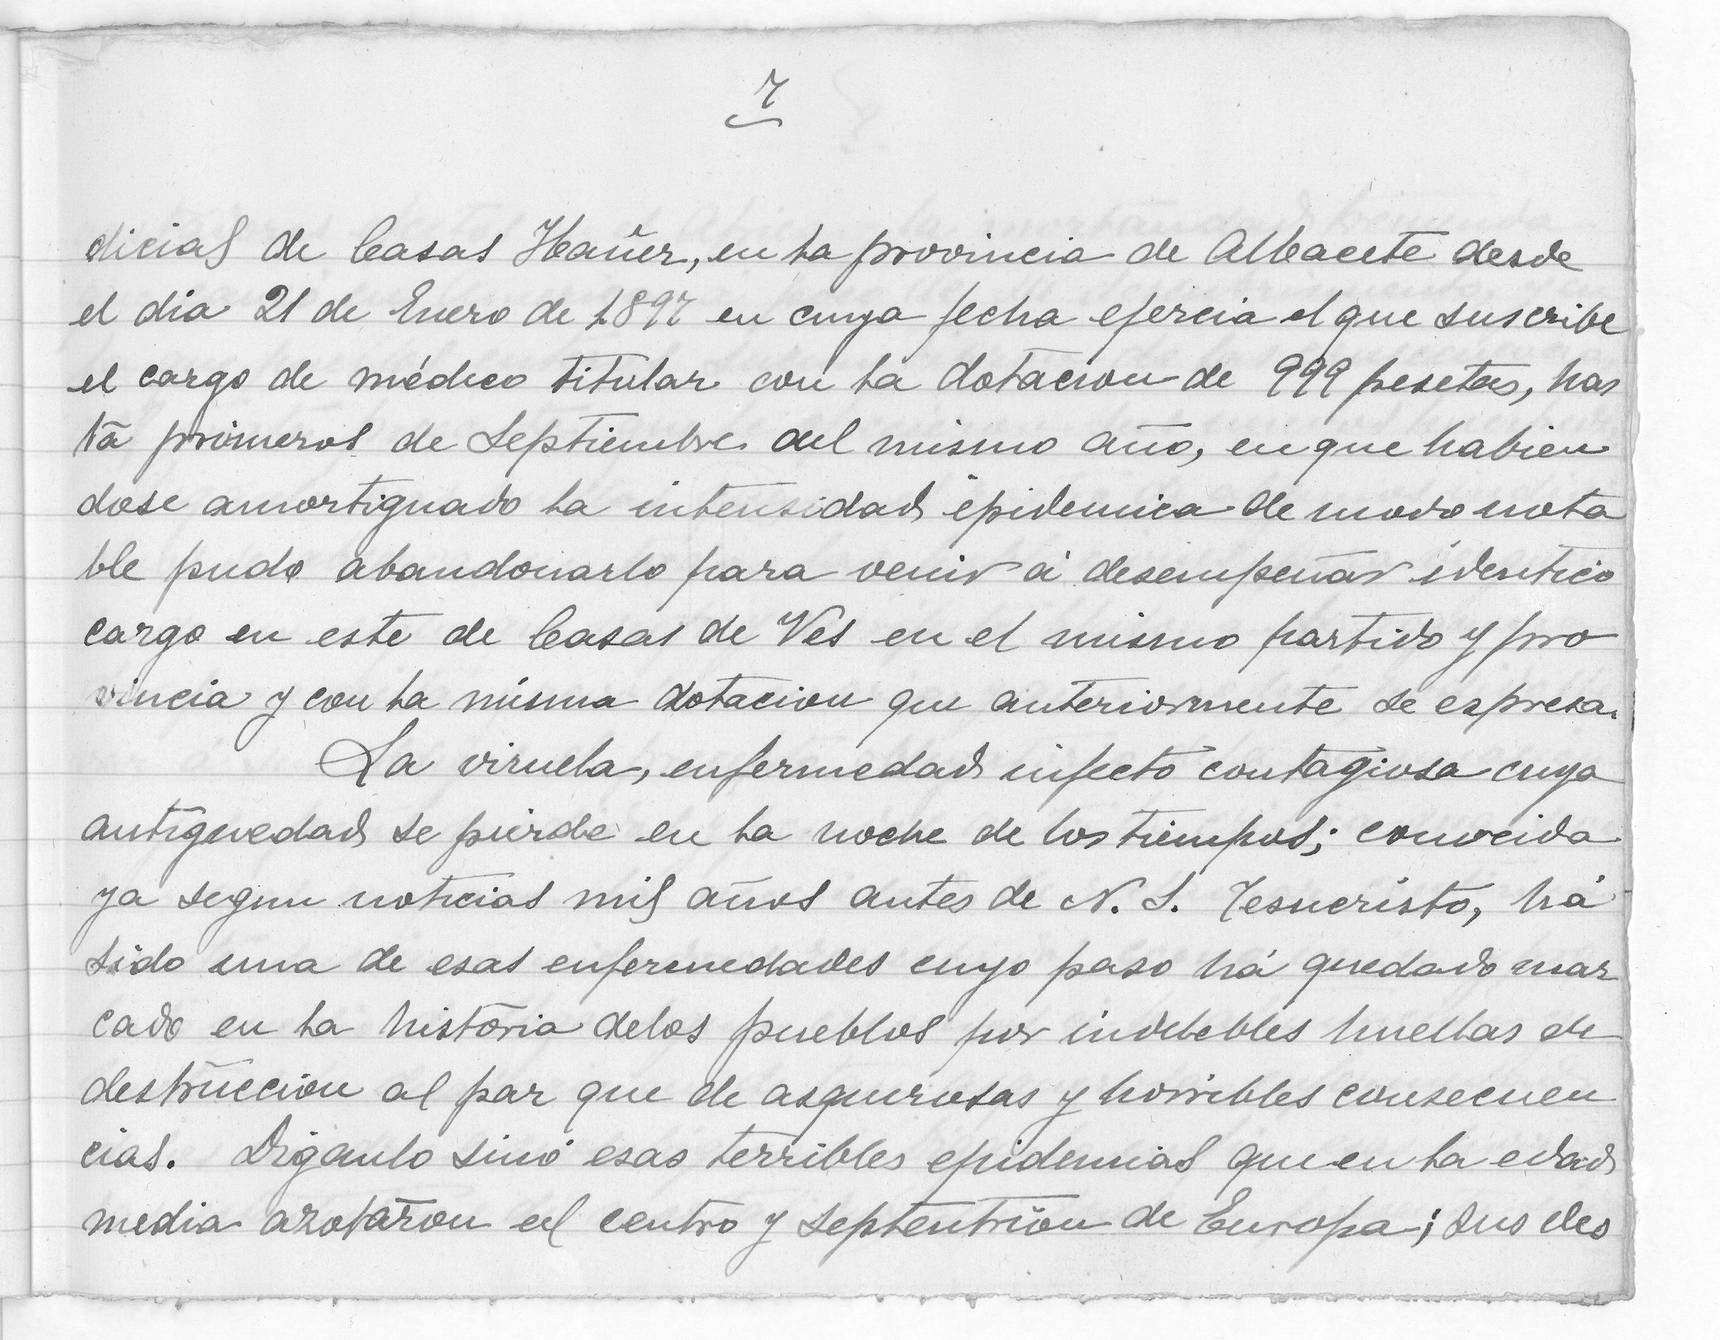 7
dicial de Casas Ibañez, en la provincia de Albacete desde
el dia 21 de Enero de 1897 en cuya fecha ejercia el que suscribe
el cargo de médico titular con la dotacion de 999 pesetas, has
ta primeros de Septiembre del mismo año, en que habien
dose amortiguado la intensidad epidemica de modo nota
ble pudo abandonarlo para venir á desempeñar identico
cargo en este de Casas de Ves en el mismo partido y pro
vincia y con la misma dotacion que anteriormente se espresa.
La viruela, enfermedad infecto contagiosa cuya
antiguedad se pierde en la noche de los tiempos; conocida
ya segun noticias mil años antes de N. S. Jesucristo, há
sido una de esas enfermedades cuyo paso há quedado mar
cado en la historia delos pueblos por indelebles huellas de
destruccion al par que de asquerosas y horribles consecuen
cias. Diganlo sinó esas terribles epidemias que en la edad
media azotaron el centro y septentrion de Europa; sus des